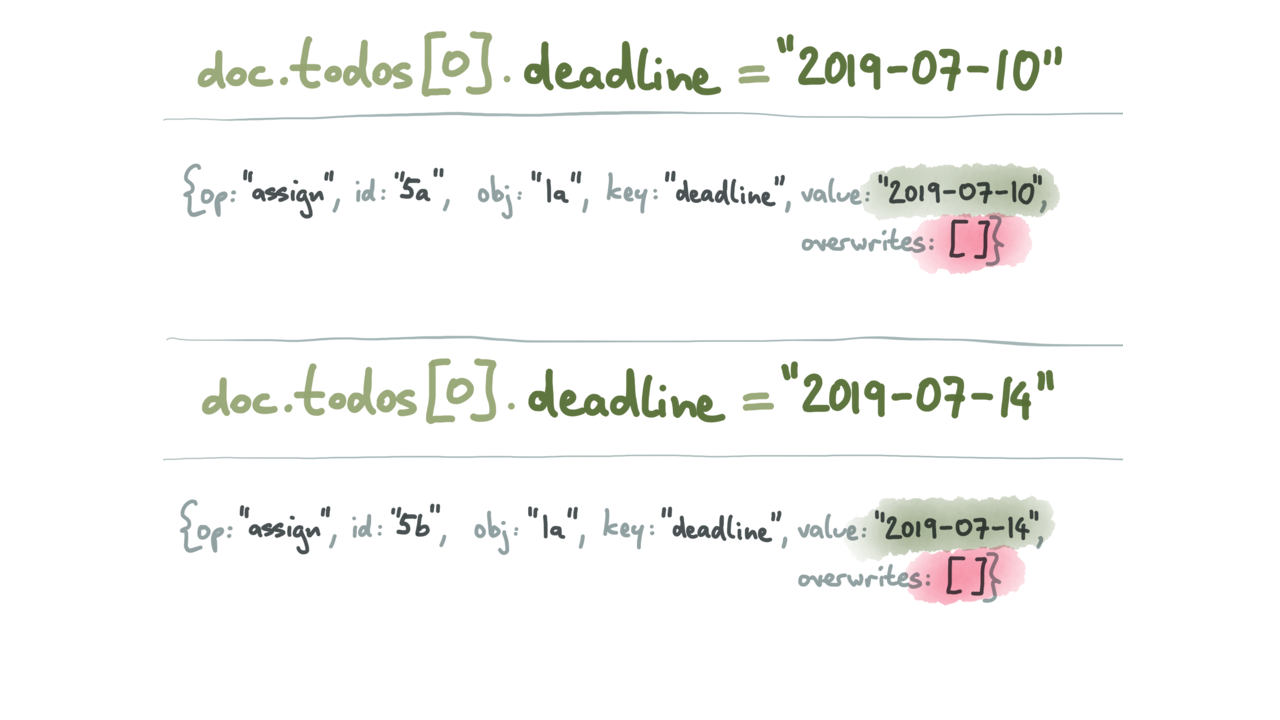 doc.todos[0].deadline = "2019-07-10"
{op: "assign", id: "5a", obj: "1a", key: "deadline", value: "2019-07-10",
overwrites: []}
doc.todos[0].deadline = "2019-07-14"
{op: "assign", id: "5b", obj: "1a", key: "deadline", value: "2019-07-14",
overwrites: []}